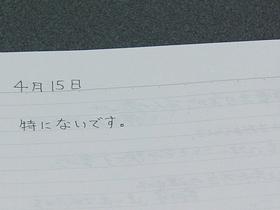 4月15日
特にないです。